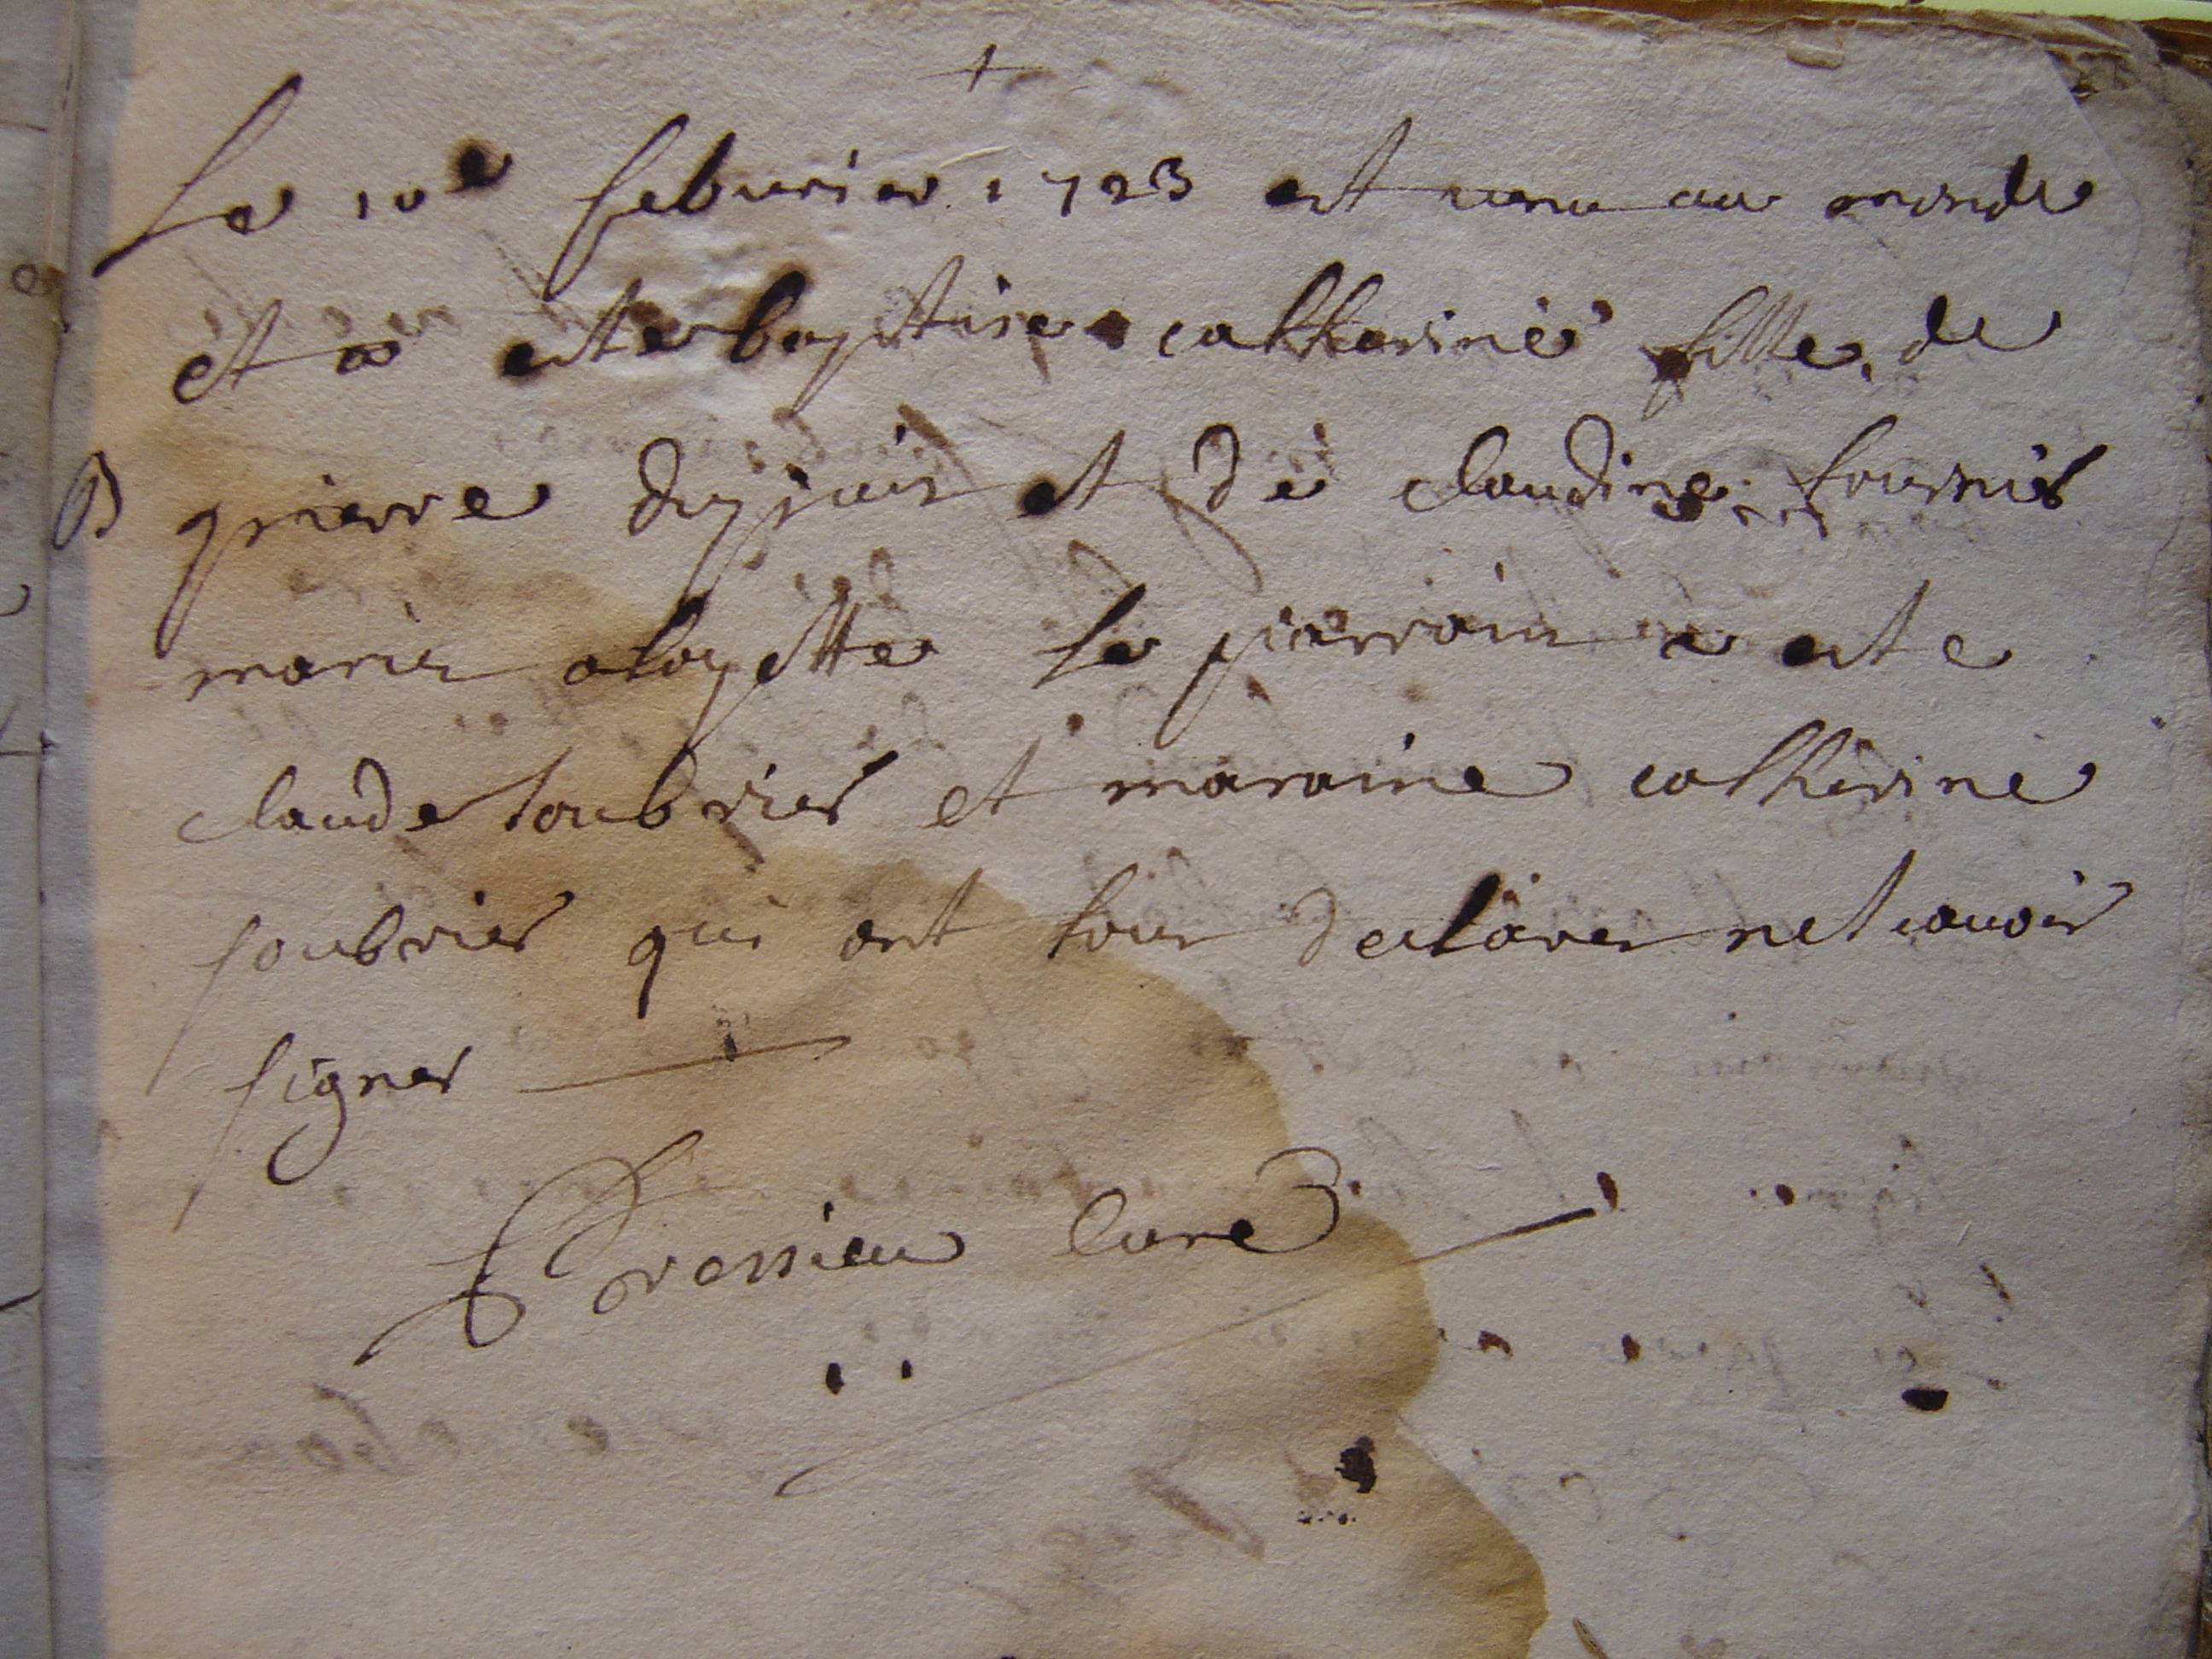 +
Le 10e feburier 1723 est venu au monde
et a este baptise catherine fille de
B pierre dupuis et de claudine fournier
maries a loyette le parrain a este
claude soubrier et maraine catherine
soubrier qui ont tous declares ne scavoir
signer
Bressieu Curé